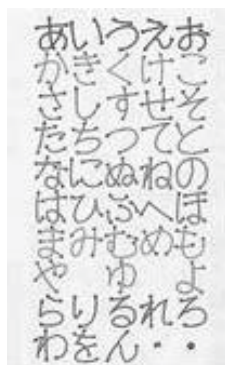 あいうえお
かきくけこ
さしすせそ
たちつてと
なにぬねの
はひふへほ
まみむめも
や ゆ よ
らりるれろ
わをん・・